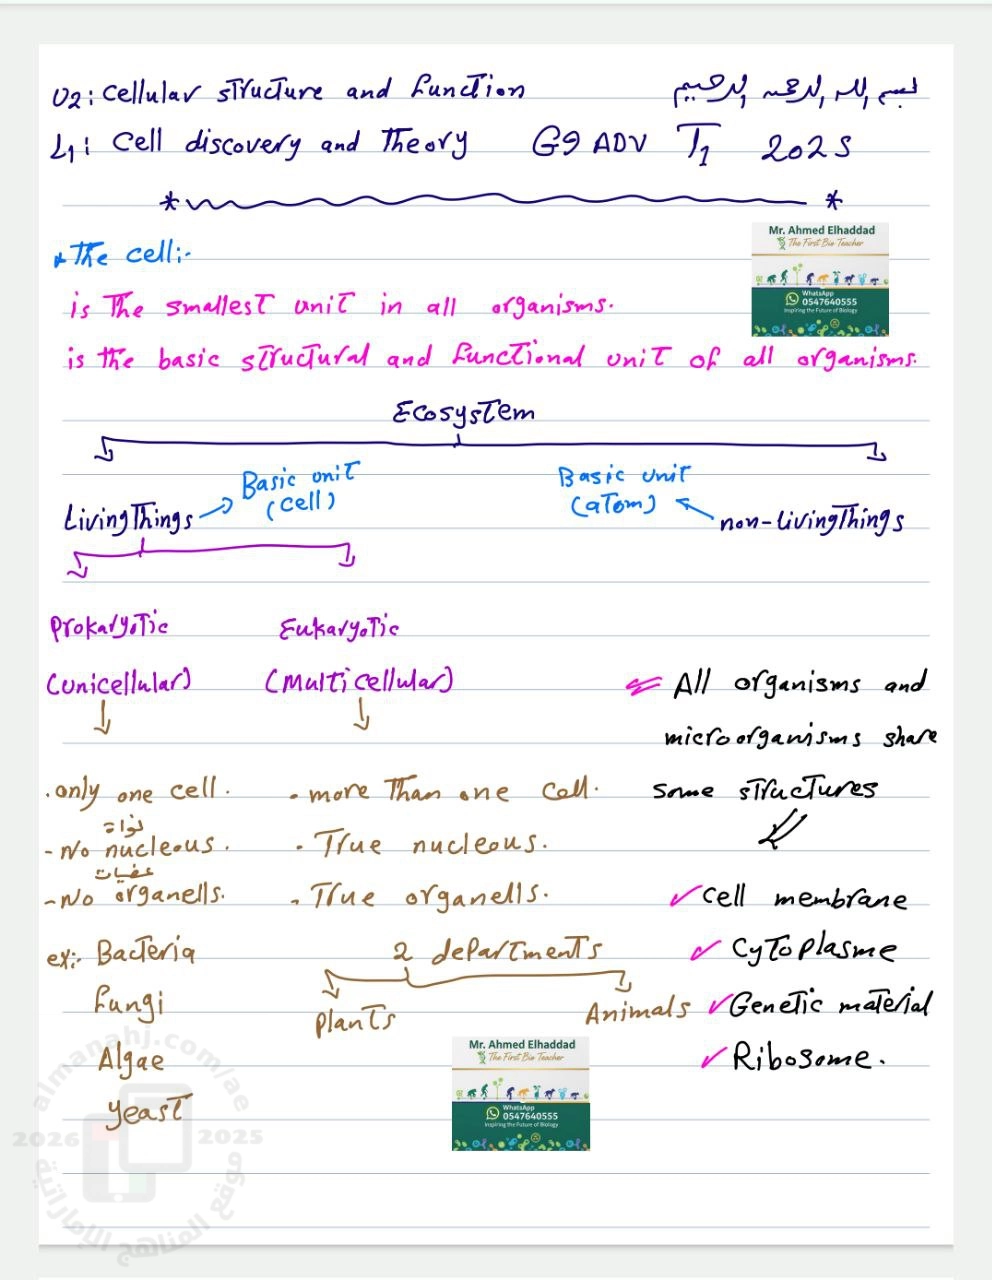 U2: Cellular structure and Function
بسم الله الرحمن الرحيم
L1: Cell discovery and Theory G9 ADV T1 2025
* *
* The cell:-
Mr. Ahmed Elhaddad
The First Bio Teacher
WhatsApp
0547640555
Inspiring the Future of Biology
is The smallest unit in all organisms.
is the basic structural and functional unit of all organisms.
Ecosystem
Basic unit
(cell)
Basic unit
(atom)
Living Things
non-living Things
Prokaryotic Eukaryotic
(unicellular) (Multicellular)
All organisms and
microorganisms share
some structures
.only one cell.
- more Than one Cell.
نواة
- No nucleous.
- True nucleous.
عضيات
- No organells.
- True organells.
✓ Cell membrane
ex:- Bacteria
2 departments
✓ Cytoplasme
Fungi
Plants Animals
✓ Genetic material
Algae
✓ Ribosome.
yeast
Mr. Ahmed Elhaddad
The First Bio Teacher
WhatsApp
0547640555
Inspiring the Future of Biology
almanahj.com/ae
2026 2025
موقع المناهج الإماراتية